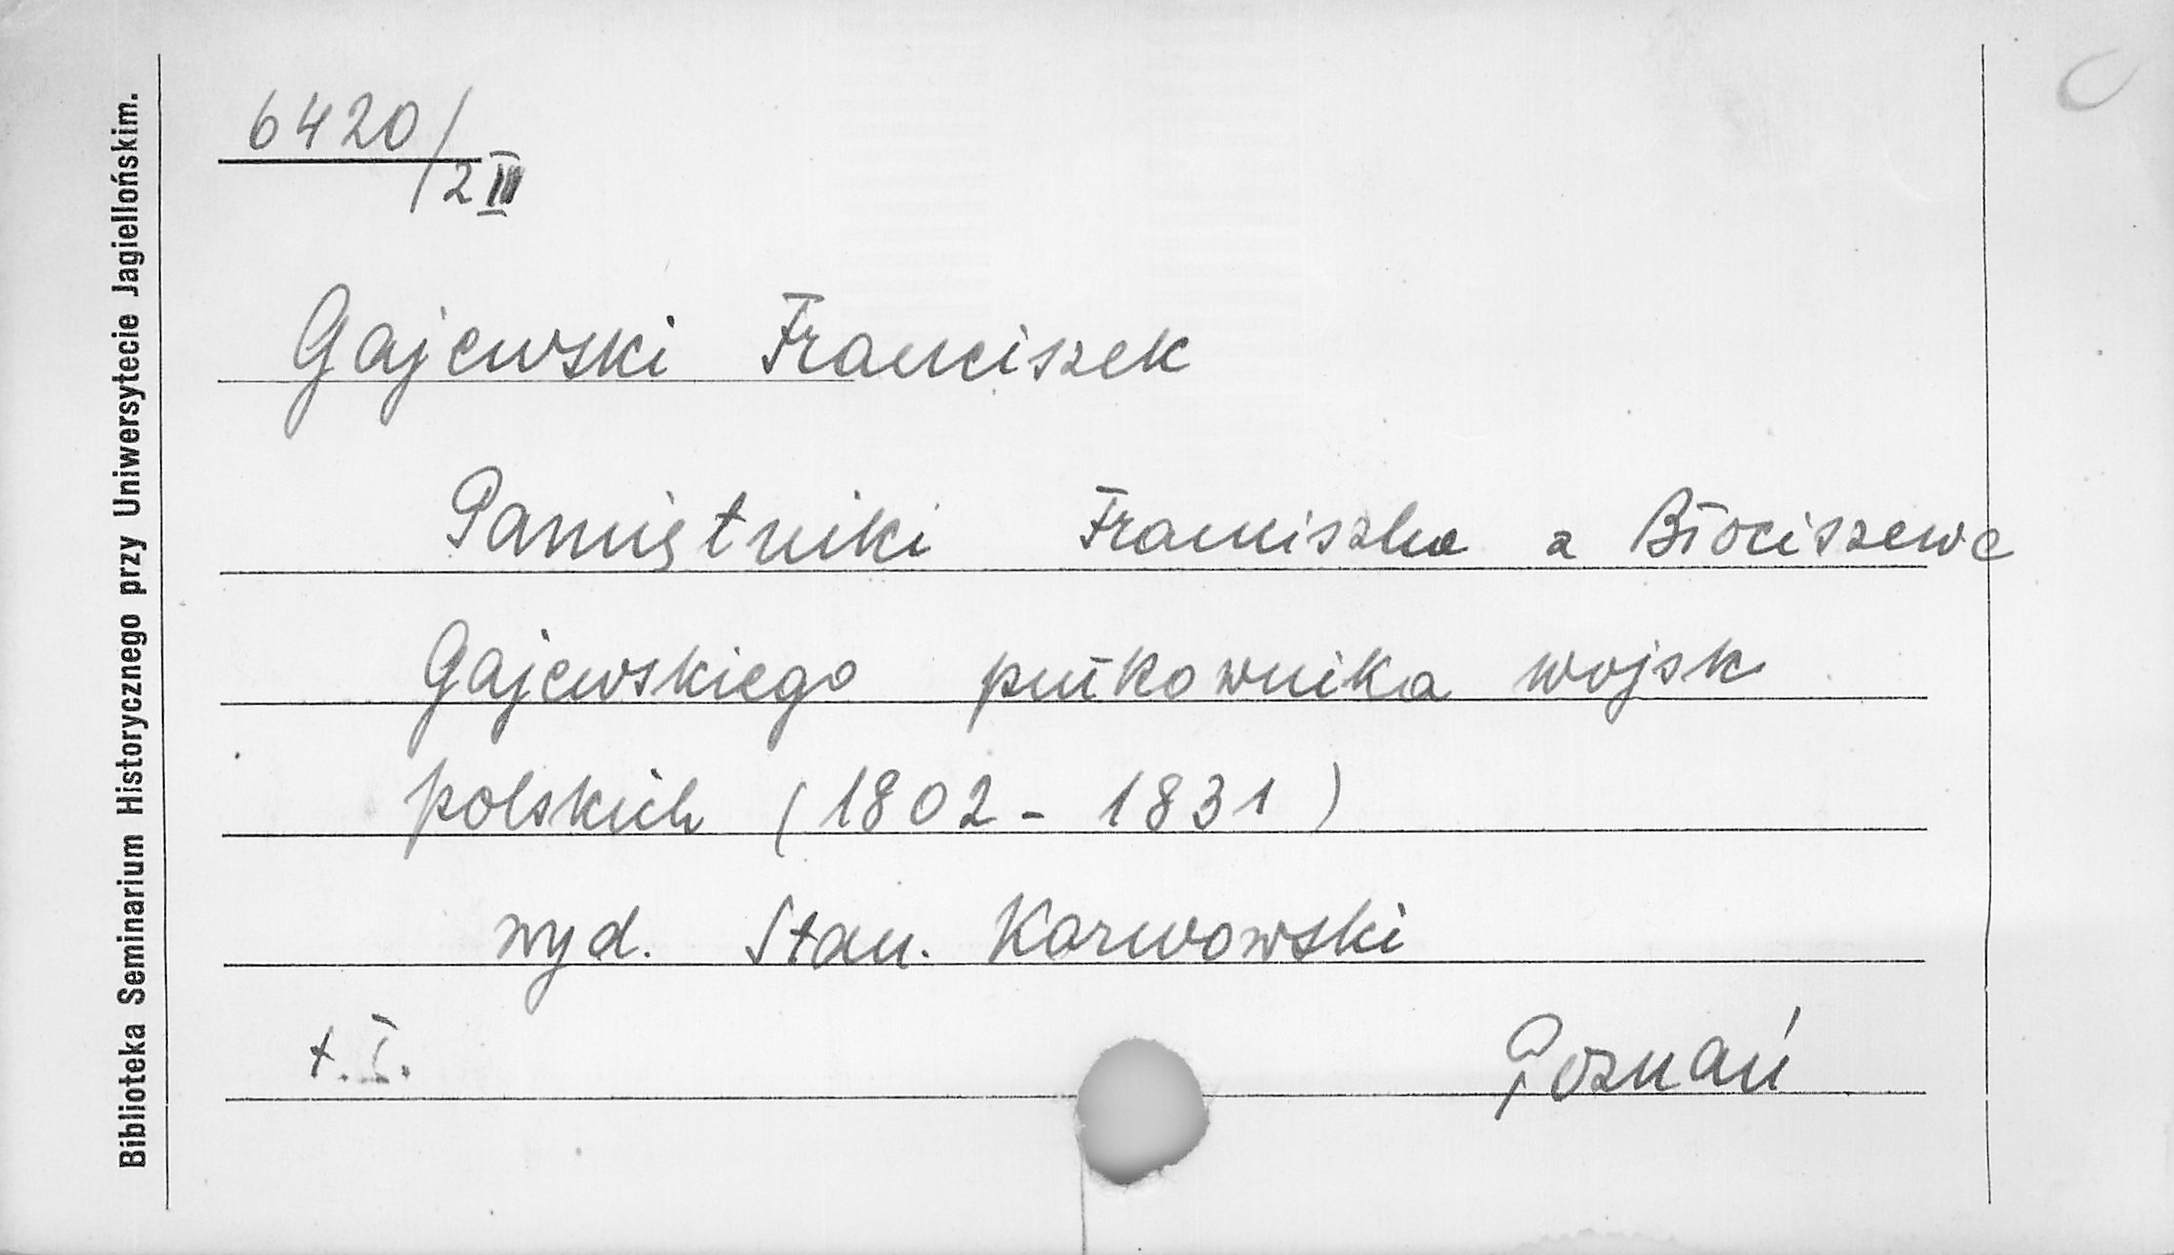 Biblioteka Seminarium Historycznego przy Uniwersytecie Jagiellońskim.
6420/2 III
Gajewski Franciszek
Pamiętniki Franciszka z Błociszewa
Gajewskiego pułkownika wojsk
polskich (1802 - 1831)
wyd. Stan. Karwowski
t. I. Poznań